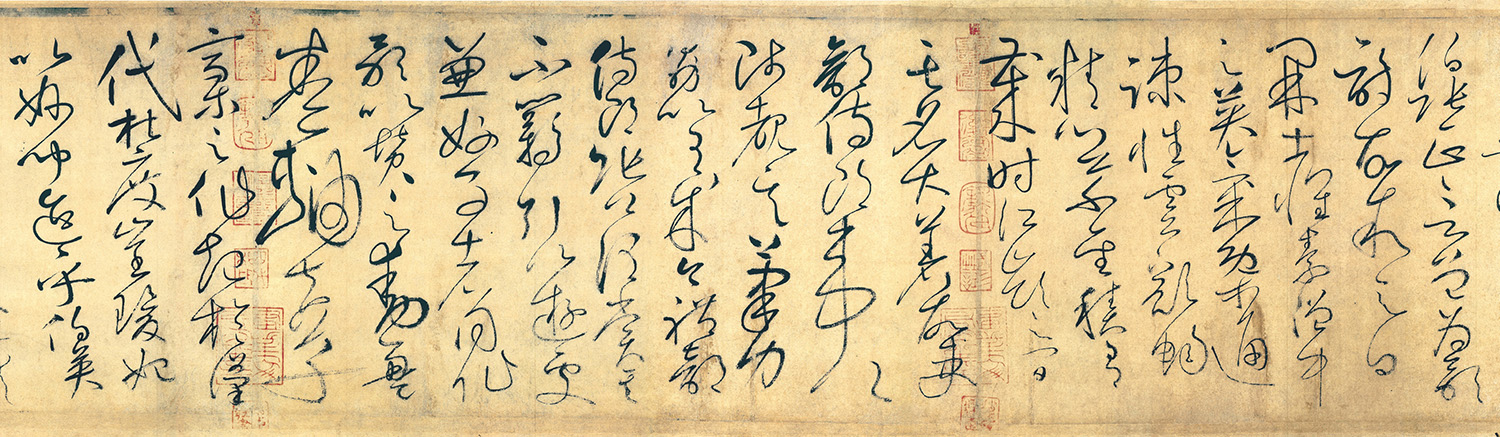 伯張正言曾為歌
詩故敘之曰
開士懷素僧中
之英氣概通
疏性靈豁暢
精心草聖積有
歲時江嶺之間
其名大著故吏
部侍郎韋公
陟睹其筆力
勗以有成今禮部
侍郎張公謂賞其
不羈引以遊處
兼好事者同作
歌以贊之動盈
卷軸夫草
稿之作起於漢
代杜度崔瑗始
以妙聞迨乎伯英